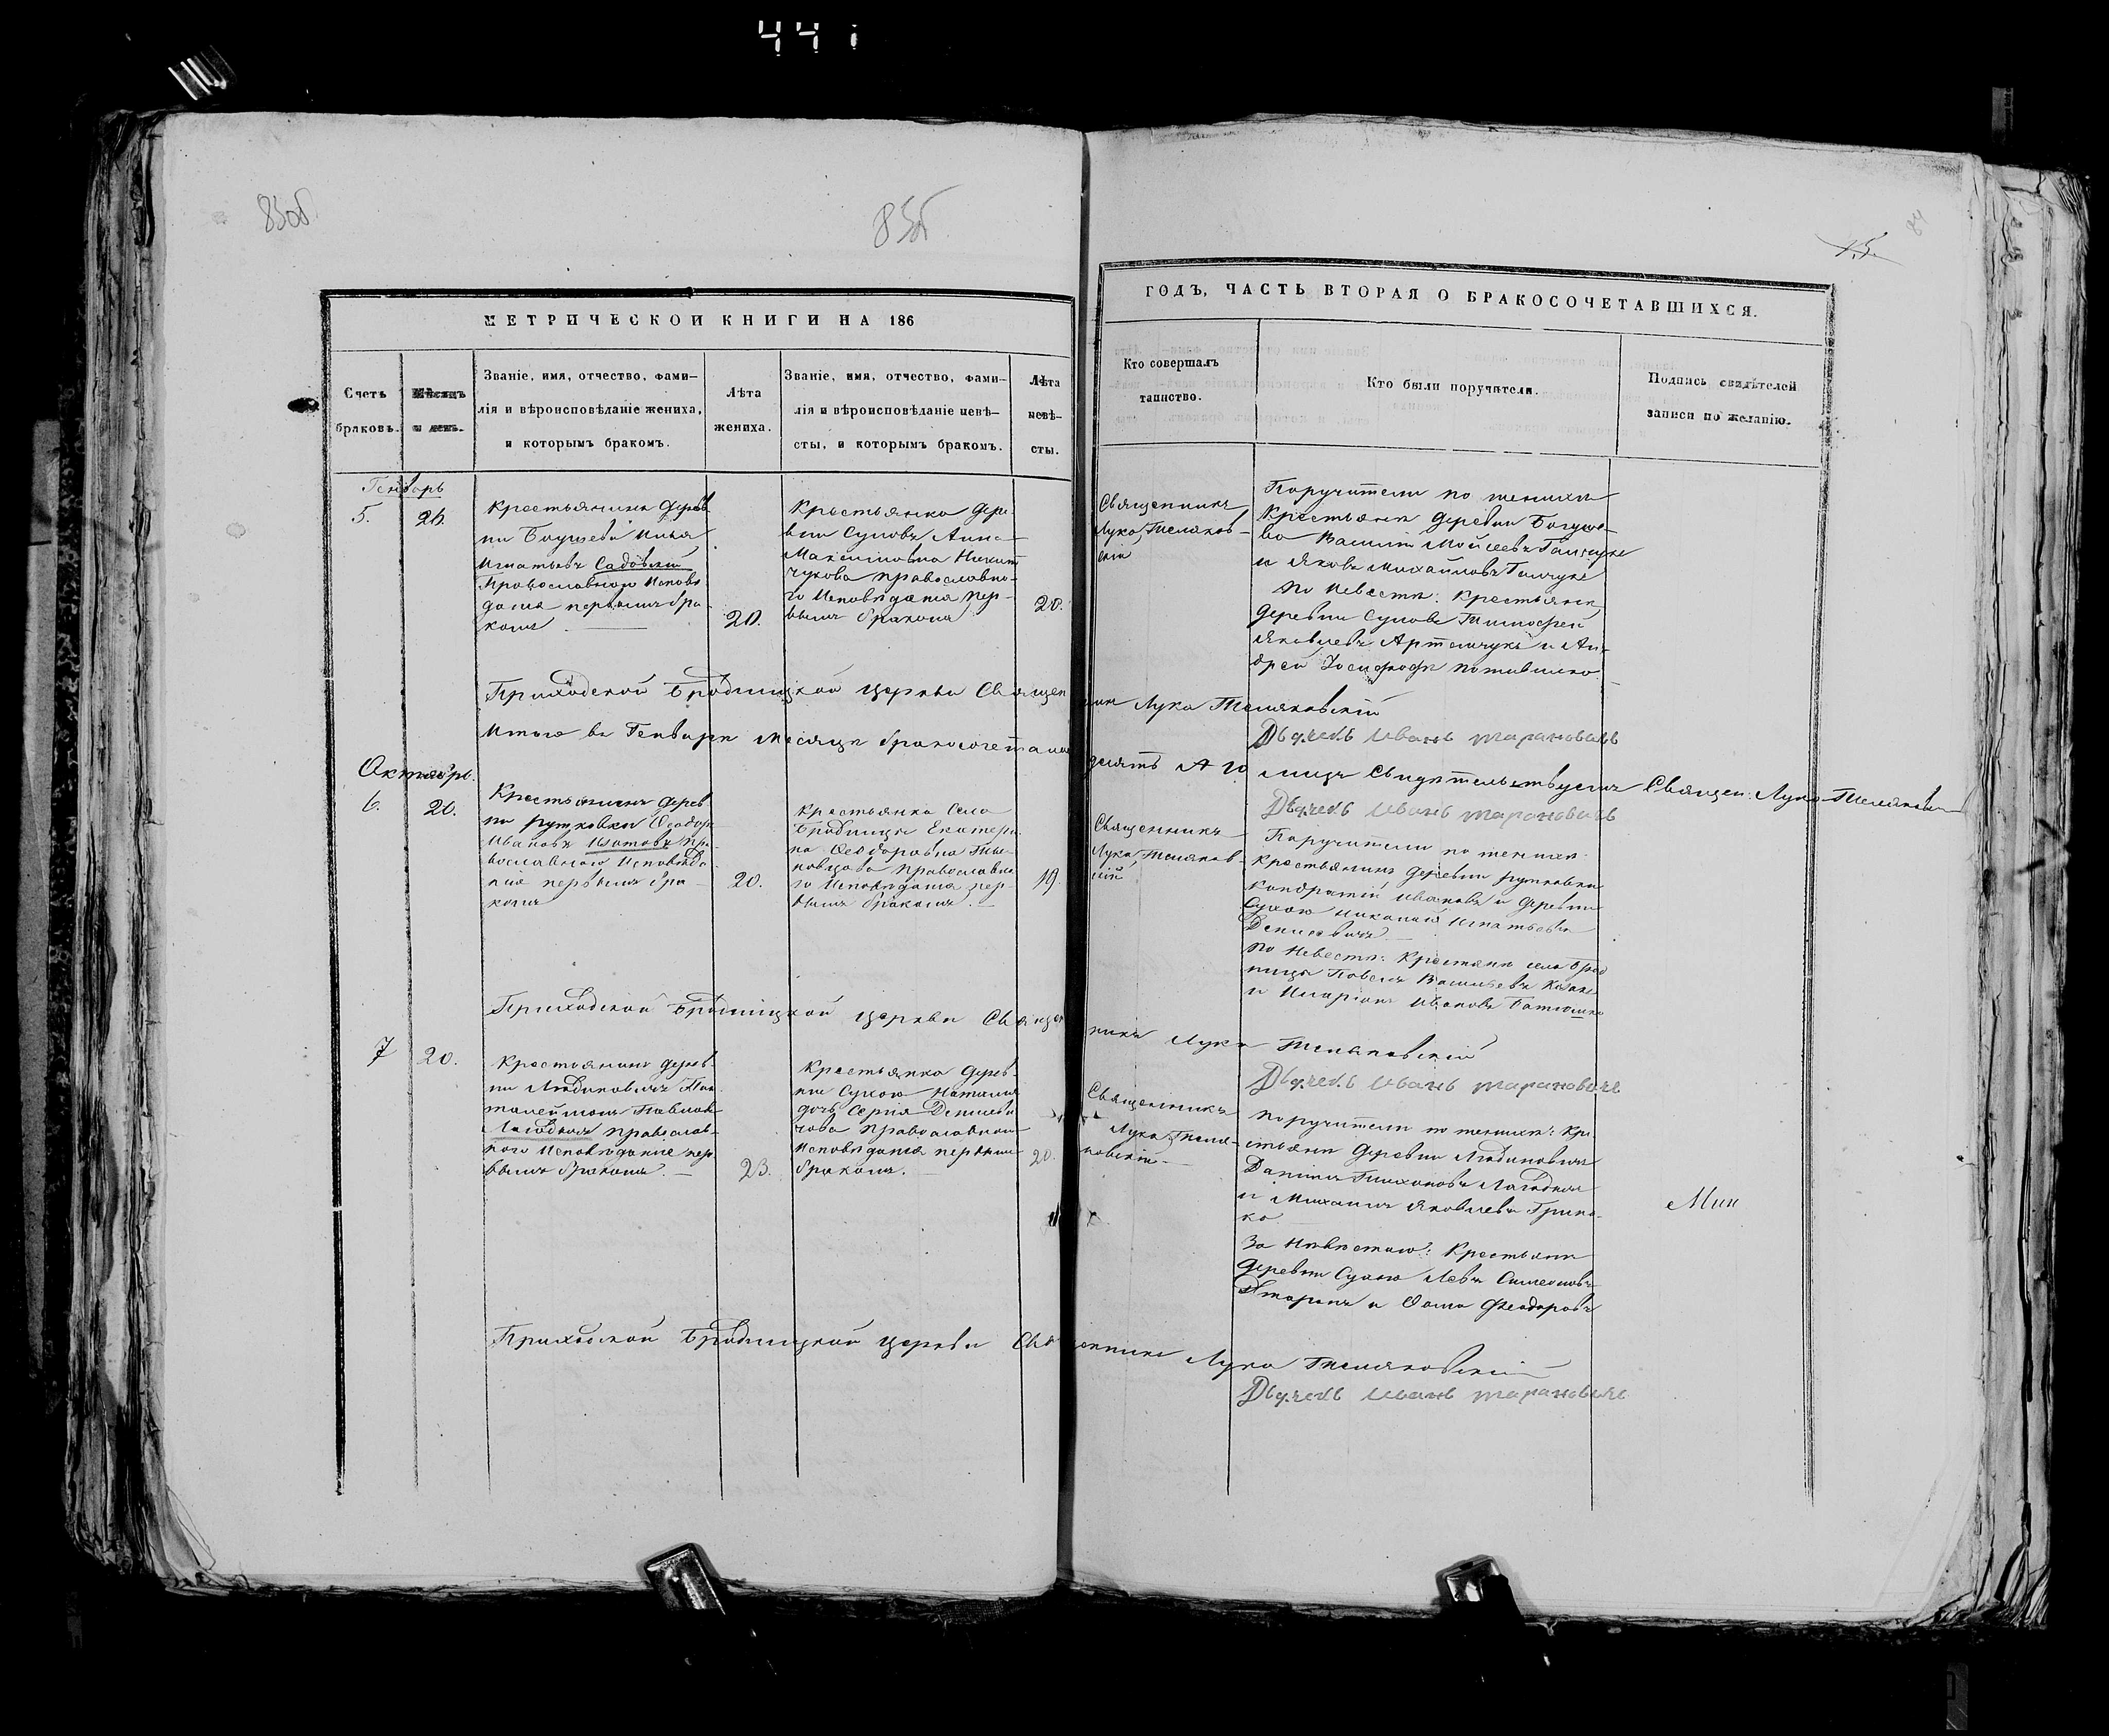 44
83об
85б
15
84
МЕТРИЧЕСКОЙ КНИГИ НА 186
ГОДЪ, ЧАСТЬ ВТОРАЯ О БРАКОСОЧЕТАВШИХСЯ.
Счетъ браковъ.
Мѣсяцъ и день.
Званіе, имя, отчество, фами-
лія и вѣроисповѣданіе жениха,
и которымъ бракомъ.
Лѣта
жениха.
Званіе, имя, отчество, фами-
лія и вѣроисповѣданіе невѣ-
сты, и которымъ бракомъ.
Лѣта
невѣ-
сты.
Кто совершалъ
таинство.
Кто были поручители.
Подпись свидѣтелей
записи по желанію.
Генварь
5.
26.
Крестьянинъ дерев
ни
Игнатьевъ Садовскій
Православного исповѣ
данія первымъ бра-
комъ
20.
Крестьянка дере-
вни Суховъ Анна
Максимовна
православно-
го Исповѣданія пер-
вымъ бракомъ
20.
Священникъ
Лука Теляков-
скій
Поручители по женихѣ
Крестьяне деревни Богуше-
ва Василій Мойсеевъ
и Яковъ Михайловъ
По невѣстѣ: Крестьяне
деревни Тимофей
Яковлевъ Артемчукъ и Ан-
дрей Іосифовъ
Приходской Бродницкой церкви Священникъ Лука Теляковскій
Дьячекъ Иванъ Тарановичъ
Итого въ Генварѣ мѣсяцѣ бракосочетались Священ. Лука Теляковскій
Дьячекъ Иванъ Тарановичъ
Октябрь.
6.
20.
Крестьянинъ дерев
ни Рутковки Ѳеодоръ
Ивановъ Изотовъ пра-
вославного исповѣда
нія первымъ бра-
комъ
20.
Крестьянка села
Бродницы Екатери-
на Ѳеодоровна
православна-
го Исповѣданія пер-
вымъ бракомъ.
19
Священникъ
Лука Теляков-
скій
Поручители по женихѣ
крестьянинъ деревни Рутковки
Кондратій Ивановъ и деревни
Сухою Николай Игнатьевъ
Денисевичъ
По невѣстѣ: Крестьяне села Брод
ницы Павелъ Васильевъ Козакъ
и Иларіонъ Ивановъ
Приходской Бродницкой церкви Священникъ Лука Теляковскій
Дьячекъ Иванъ Тарановичъ
7
20.
Крестьянинъ дерев-
ни Людиновичъ Пан-
талеймонъ Павловъ
Лагодичъ православ-
ного исповѣданіе пер
вымъ бракомъ.
23.
Крестьянка дерев-
ни Сухою Наталія
дочь Сергія Денисеви-
чова православного
исповѣданія первымъ
бракомъ.
20.
Священникъ
Лука Теля-
ковскій
Поручители по женихѣ: кре-
стьяне деревни Людиновичъ
Даніилъ Тихоновъ
и Михаилъ Яковлевъ Гринь-
ко
За невѣстою: Крестьяне
деревни Сухою Левъ Симеоновъ
и Ѳома Ѳеодоровъ
Приходской Бродницкой церкви Священникъ Лука Теляковскій
Дьячекъ Иванъ Тарановичъ